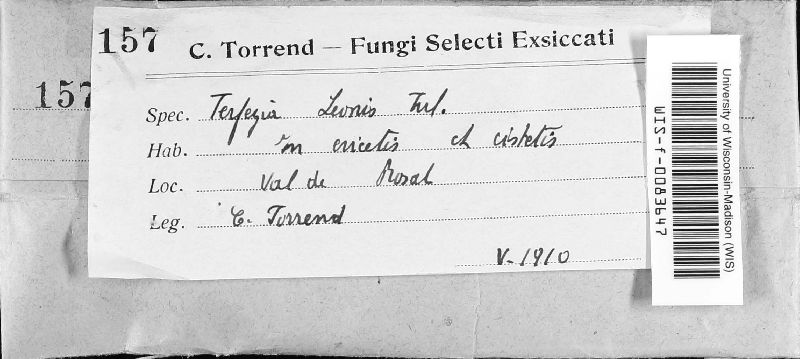 157 C. Torrend — Fungi Selecti Exsiccati
157
Spec. Terfezia Leonis Tul.
Hab. in ericetis et cistetis
Loc. Val de Rosal
Leg. C. Torrend
V-1910
University of Wisconsin-Madison (WIS)
WIS-f-0083647